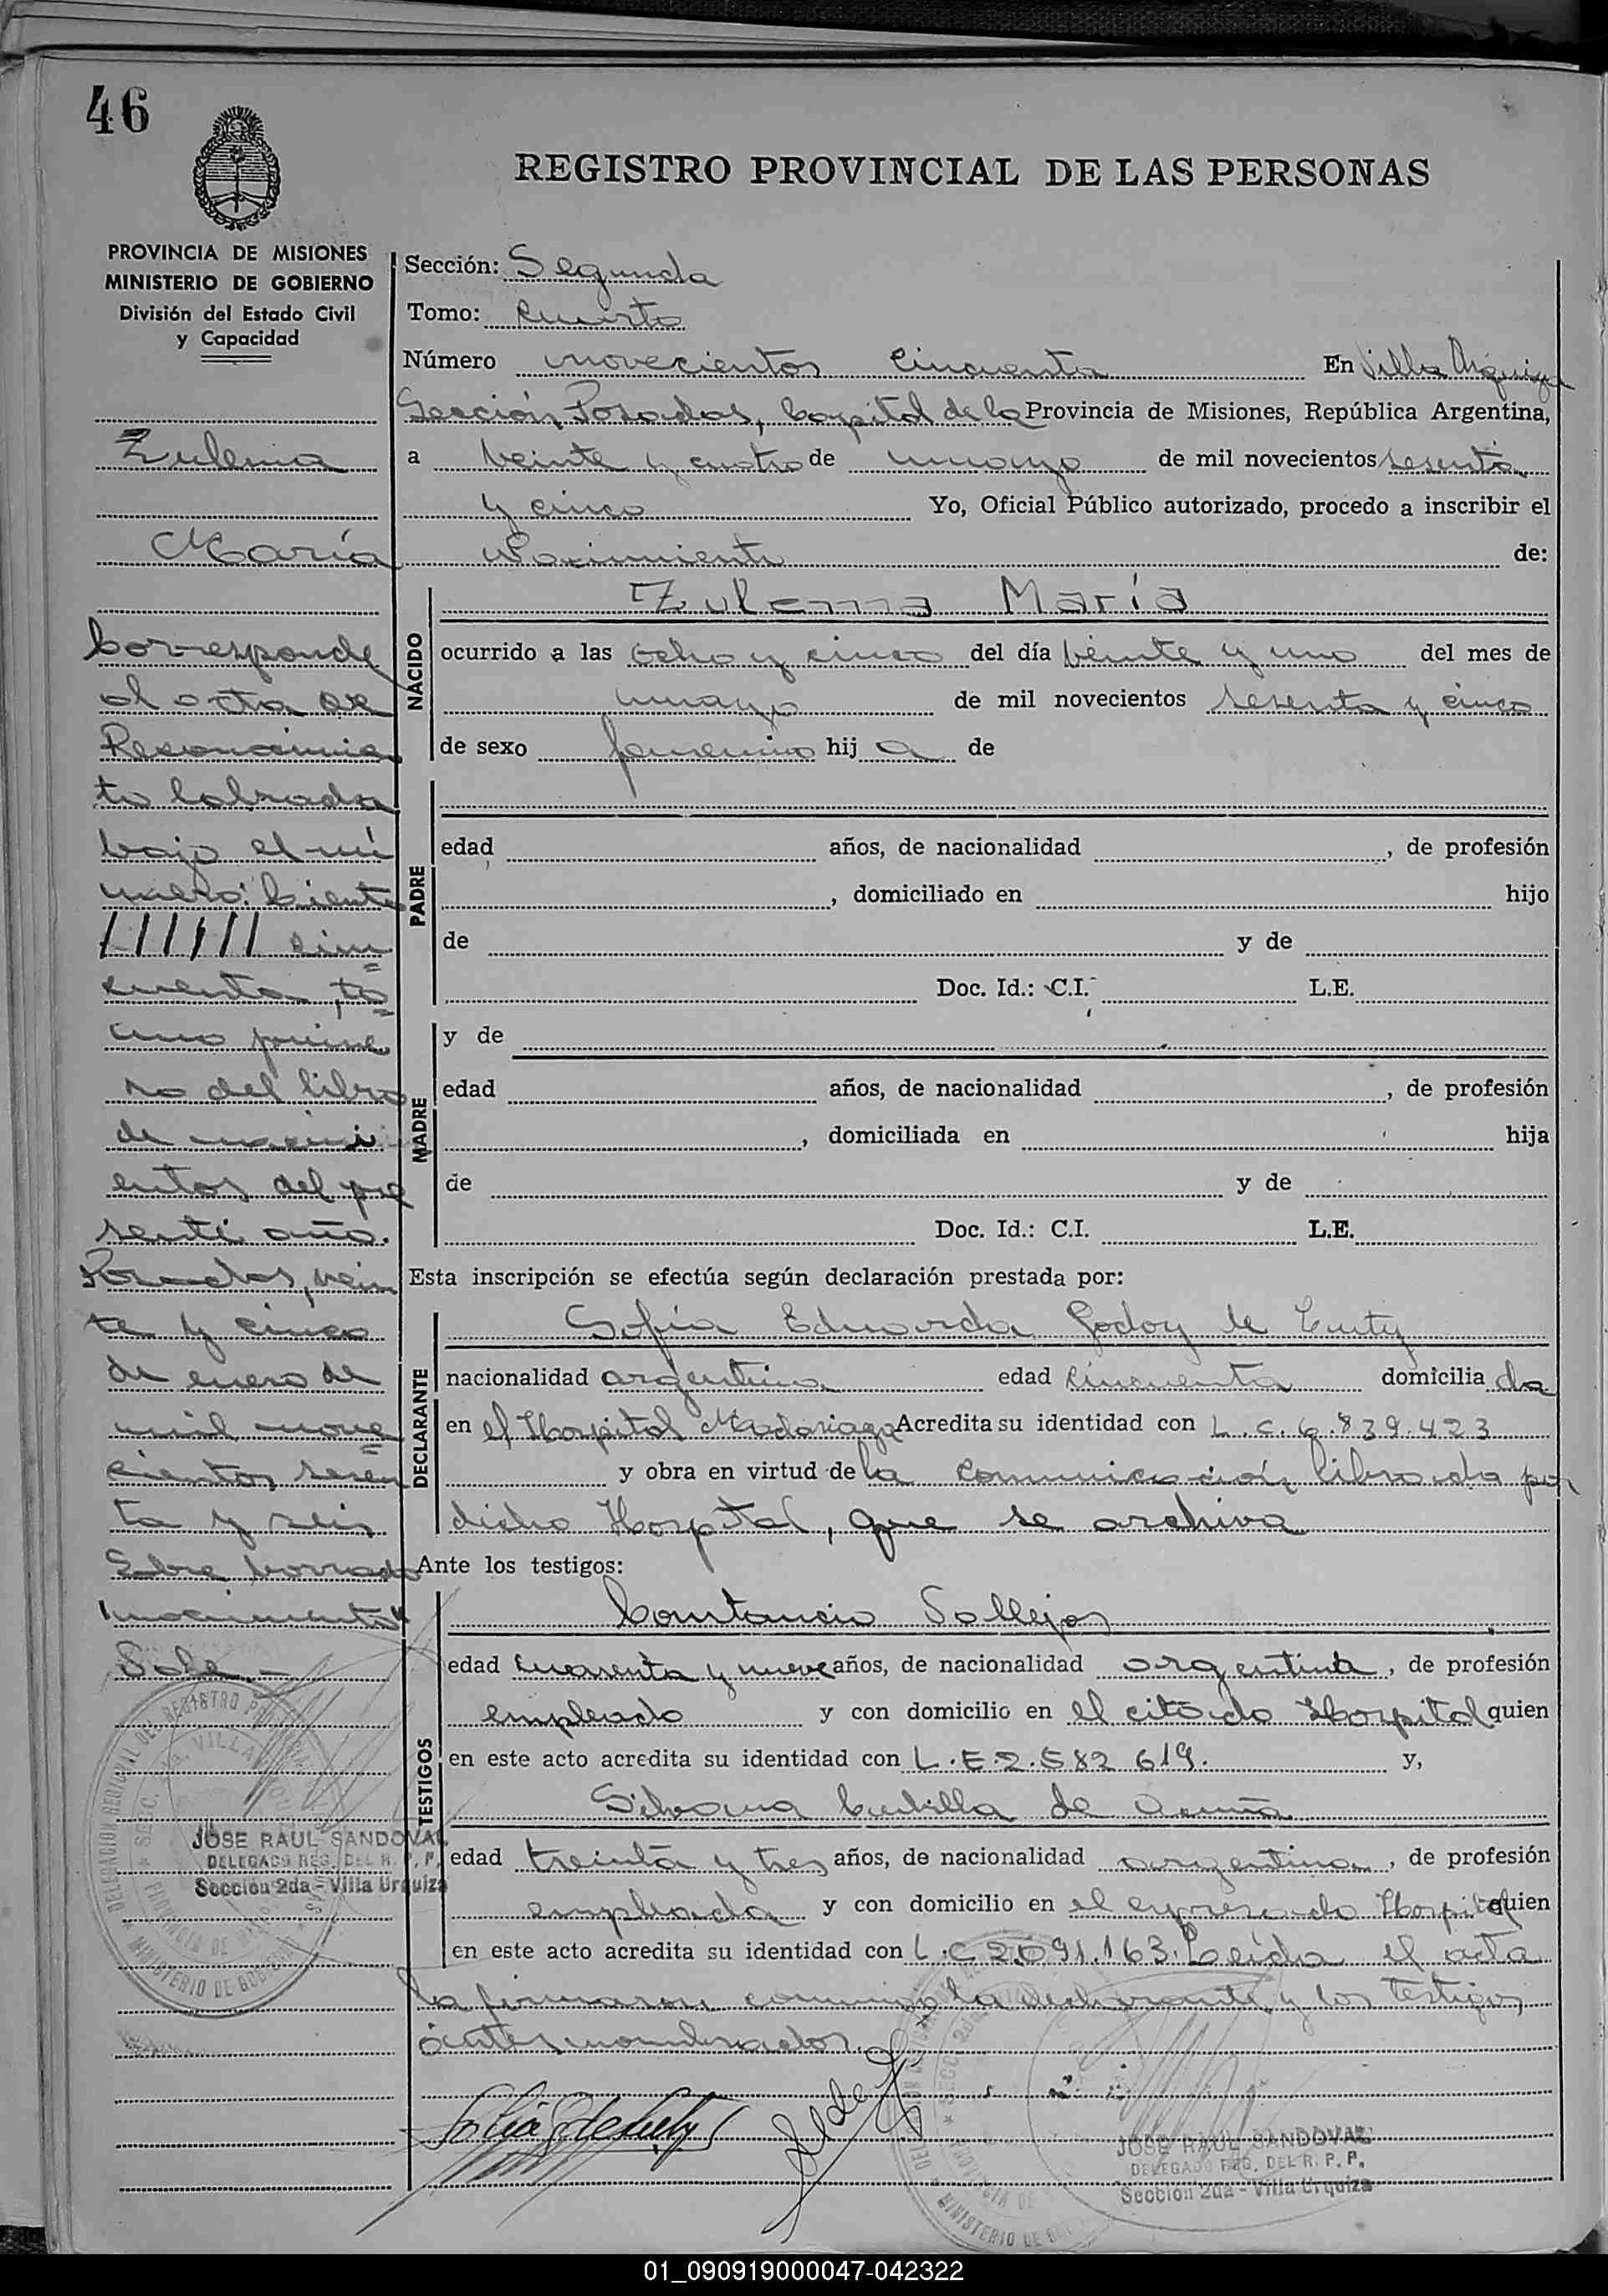 46
REGISTRO PROVINCIAL DE LAS PERSONAS
PROVINCIA DE MISIONES
MINISTERIO DE GOBIERNO
División del Estado Civil
y Capacidad
Zulema
María
Corresponde
al acta de
Reconocimien
to labrada
bajo el nú
mero: Ciento
cin
cuenta, to=
mo prime
ro del libro
de nacimi
entos del pre
sente año.
Posadas, vein
te y cinco
de enero de
mil nove=
cientos sesen
ta y seis
Sobre borrado
"nacimiento"
Vale.-
JOSE RAUL SANDOVAL
DELEGADO REG. DEL R. P. P.
Sección 2da - Villa Urquiza
Sección: Segunda
Tomo: Cuarto
Número novecientos cincuenta En Villa Urquiza
Sección Posadas, Capital de la Provincia de Misiones, República Argentina,
a veinte y cuatro de mayo de mil novecientos sesenta
y cinco Yo, Oficial Público autorizado, procedo a inscribir el
Nacimiento de:
NACIDO
Zulema María
ocurrido a las ocho y cinco del día veinte y uno del mes de
mayo de mil novecientos sesenta y cinco
de sexo femenino hija de
PADRE
edad años, de nacionalidad , de profesión
, domiciliado en hijo
de y de
Doc. Id.: C.I. L.E.
MADRE
y de
edad años, de nacionalidad , de profesión
, domiciliada en hija
de y de
Doc. Id.: C.I. L.E.
Esta inscripción se efectúa según declaración prestada por:
DECLARANTE
Sofía Eduarda Godoy de
nacionalidad argentina edad cincuenta domiciliada
en el Hospital Madariaga Acredita su identidad con L.C. 6.839.423
y obra en virtud de la comunicación librada por
dicho Hospital, que se archiva
Ante los testigos:
TESTIGOS
Constancio Vallejos
edad cuarenta y nueve años, de nacionalidad argentina, de profesión
empleado y con domicilio en el citado Hospital quien
en este acto acredita su identidad con L.E. 2.582 619. y,
Silvana de Acuña
edad treinta y tres años, de nacionalidad argentina, de profesión
empleada y con domicilio en el expresado Hospital quien
en este acto acredita su identidad con L.C 2.091.163. Leída el acta
la firmaron conmigo la declarante y los testigos
antes nombrados.
JOSE RAUL SANDOVAL
DELEGADO REG. DEL R. P. P.
Sección 2da - Villa Urquiza
01_090919000047-042322